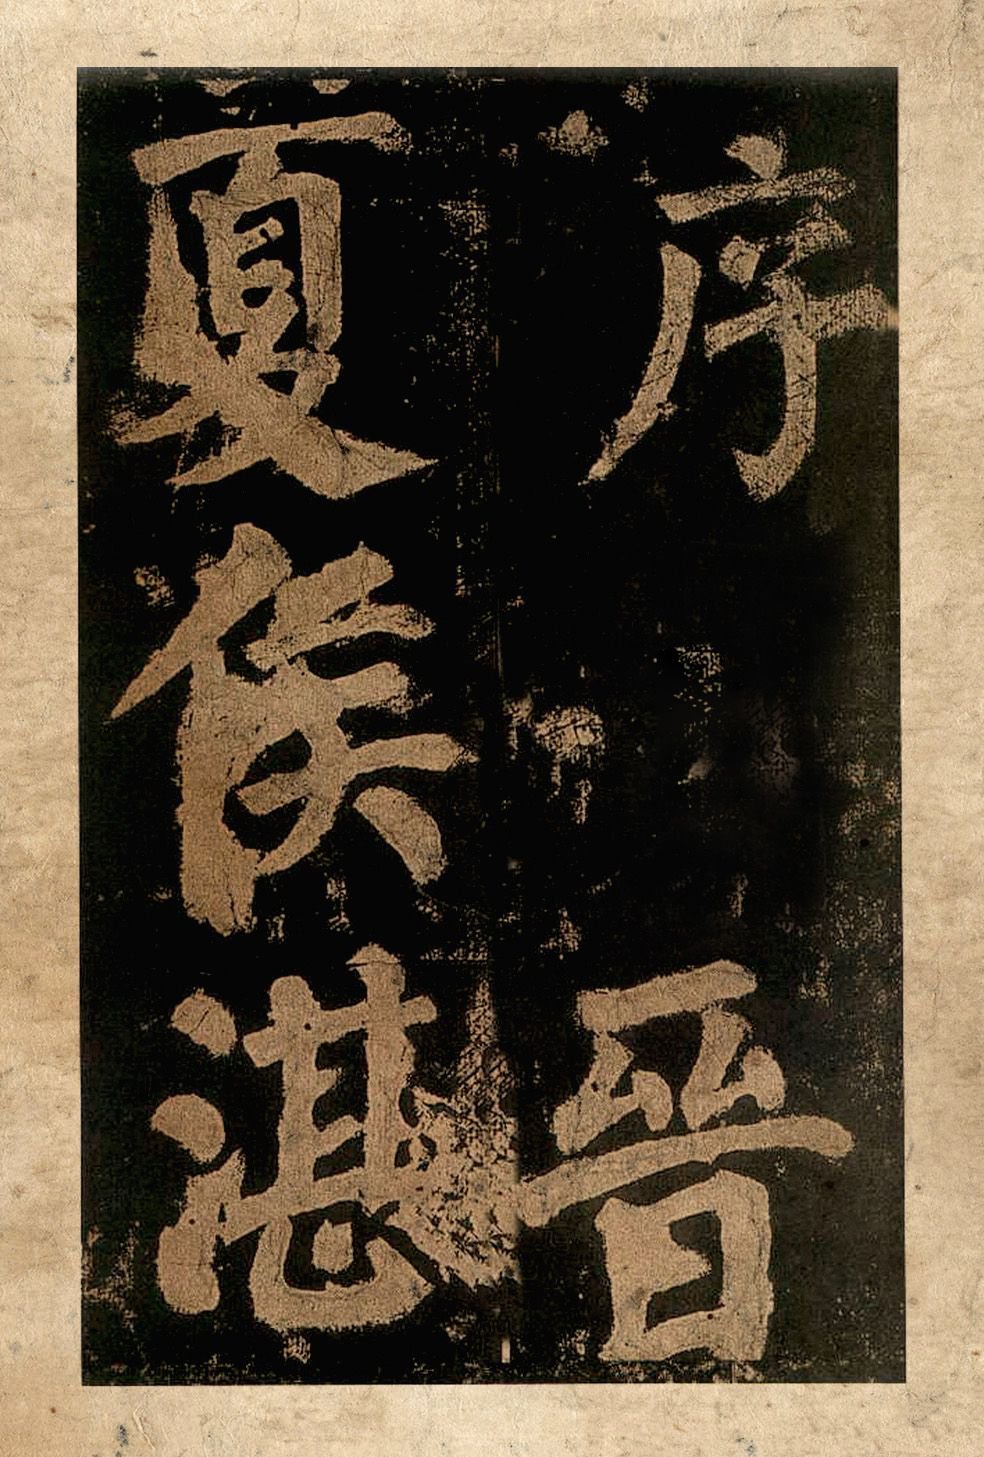 序 晉
夏侯湛